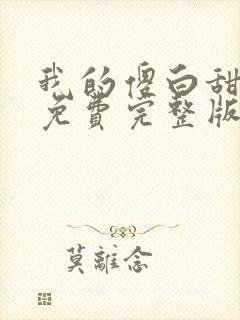 我的傻白甜
免费完整版
莫離念